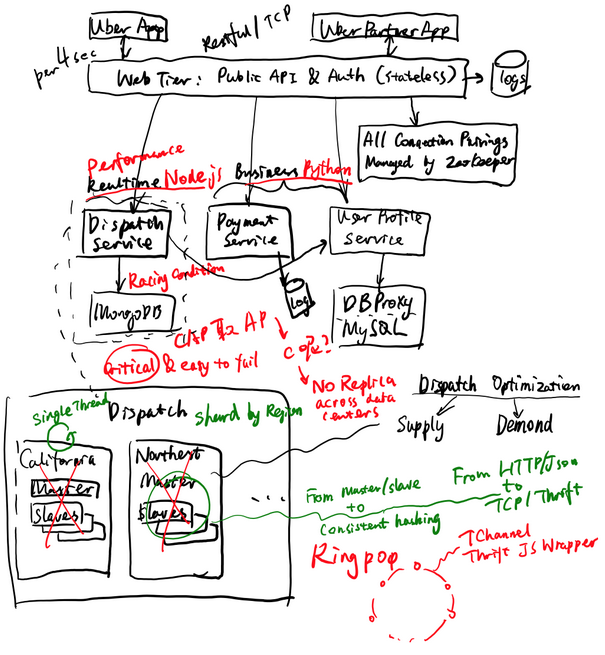 Uber App
Restful/TCP
Uber Partner App
per 4 sec
Web Tier: Public API & Auth (stateless)
logs
All Connection Pairings
Managed by Zookeeper
Performance
Realtime Nodejs
Business Python
Dispatch
Service
Payment
Service
User Profile
Service
Racing Condition
MongoDB
log
DBProxy
MySQL
AP
Copy?
Critical & easy to fail
No Replica
across data
centers
Dispatch Optimization
Supply
Demond
Single Thread
Dispatch
by Region
California
Master
Slaves
Northest
Master
Slaves
...
From Master/slave
to
Consistent hashing
From HTTP/Json
to
TCP/Thrift
Ringpop
TChannel
Thrift JS Wrapper